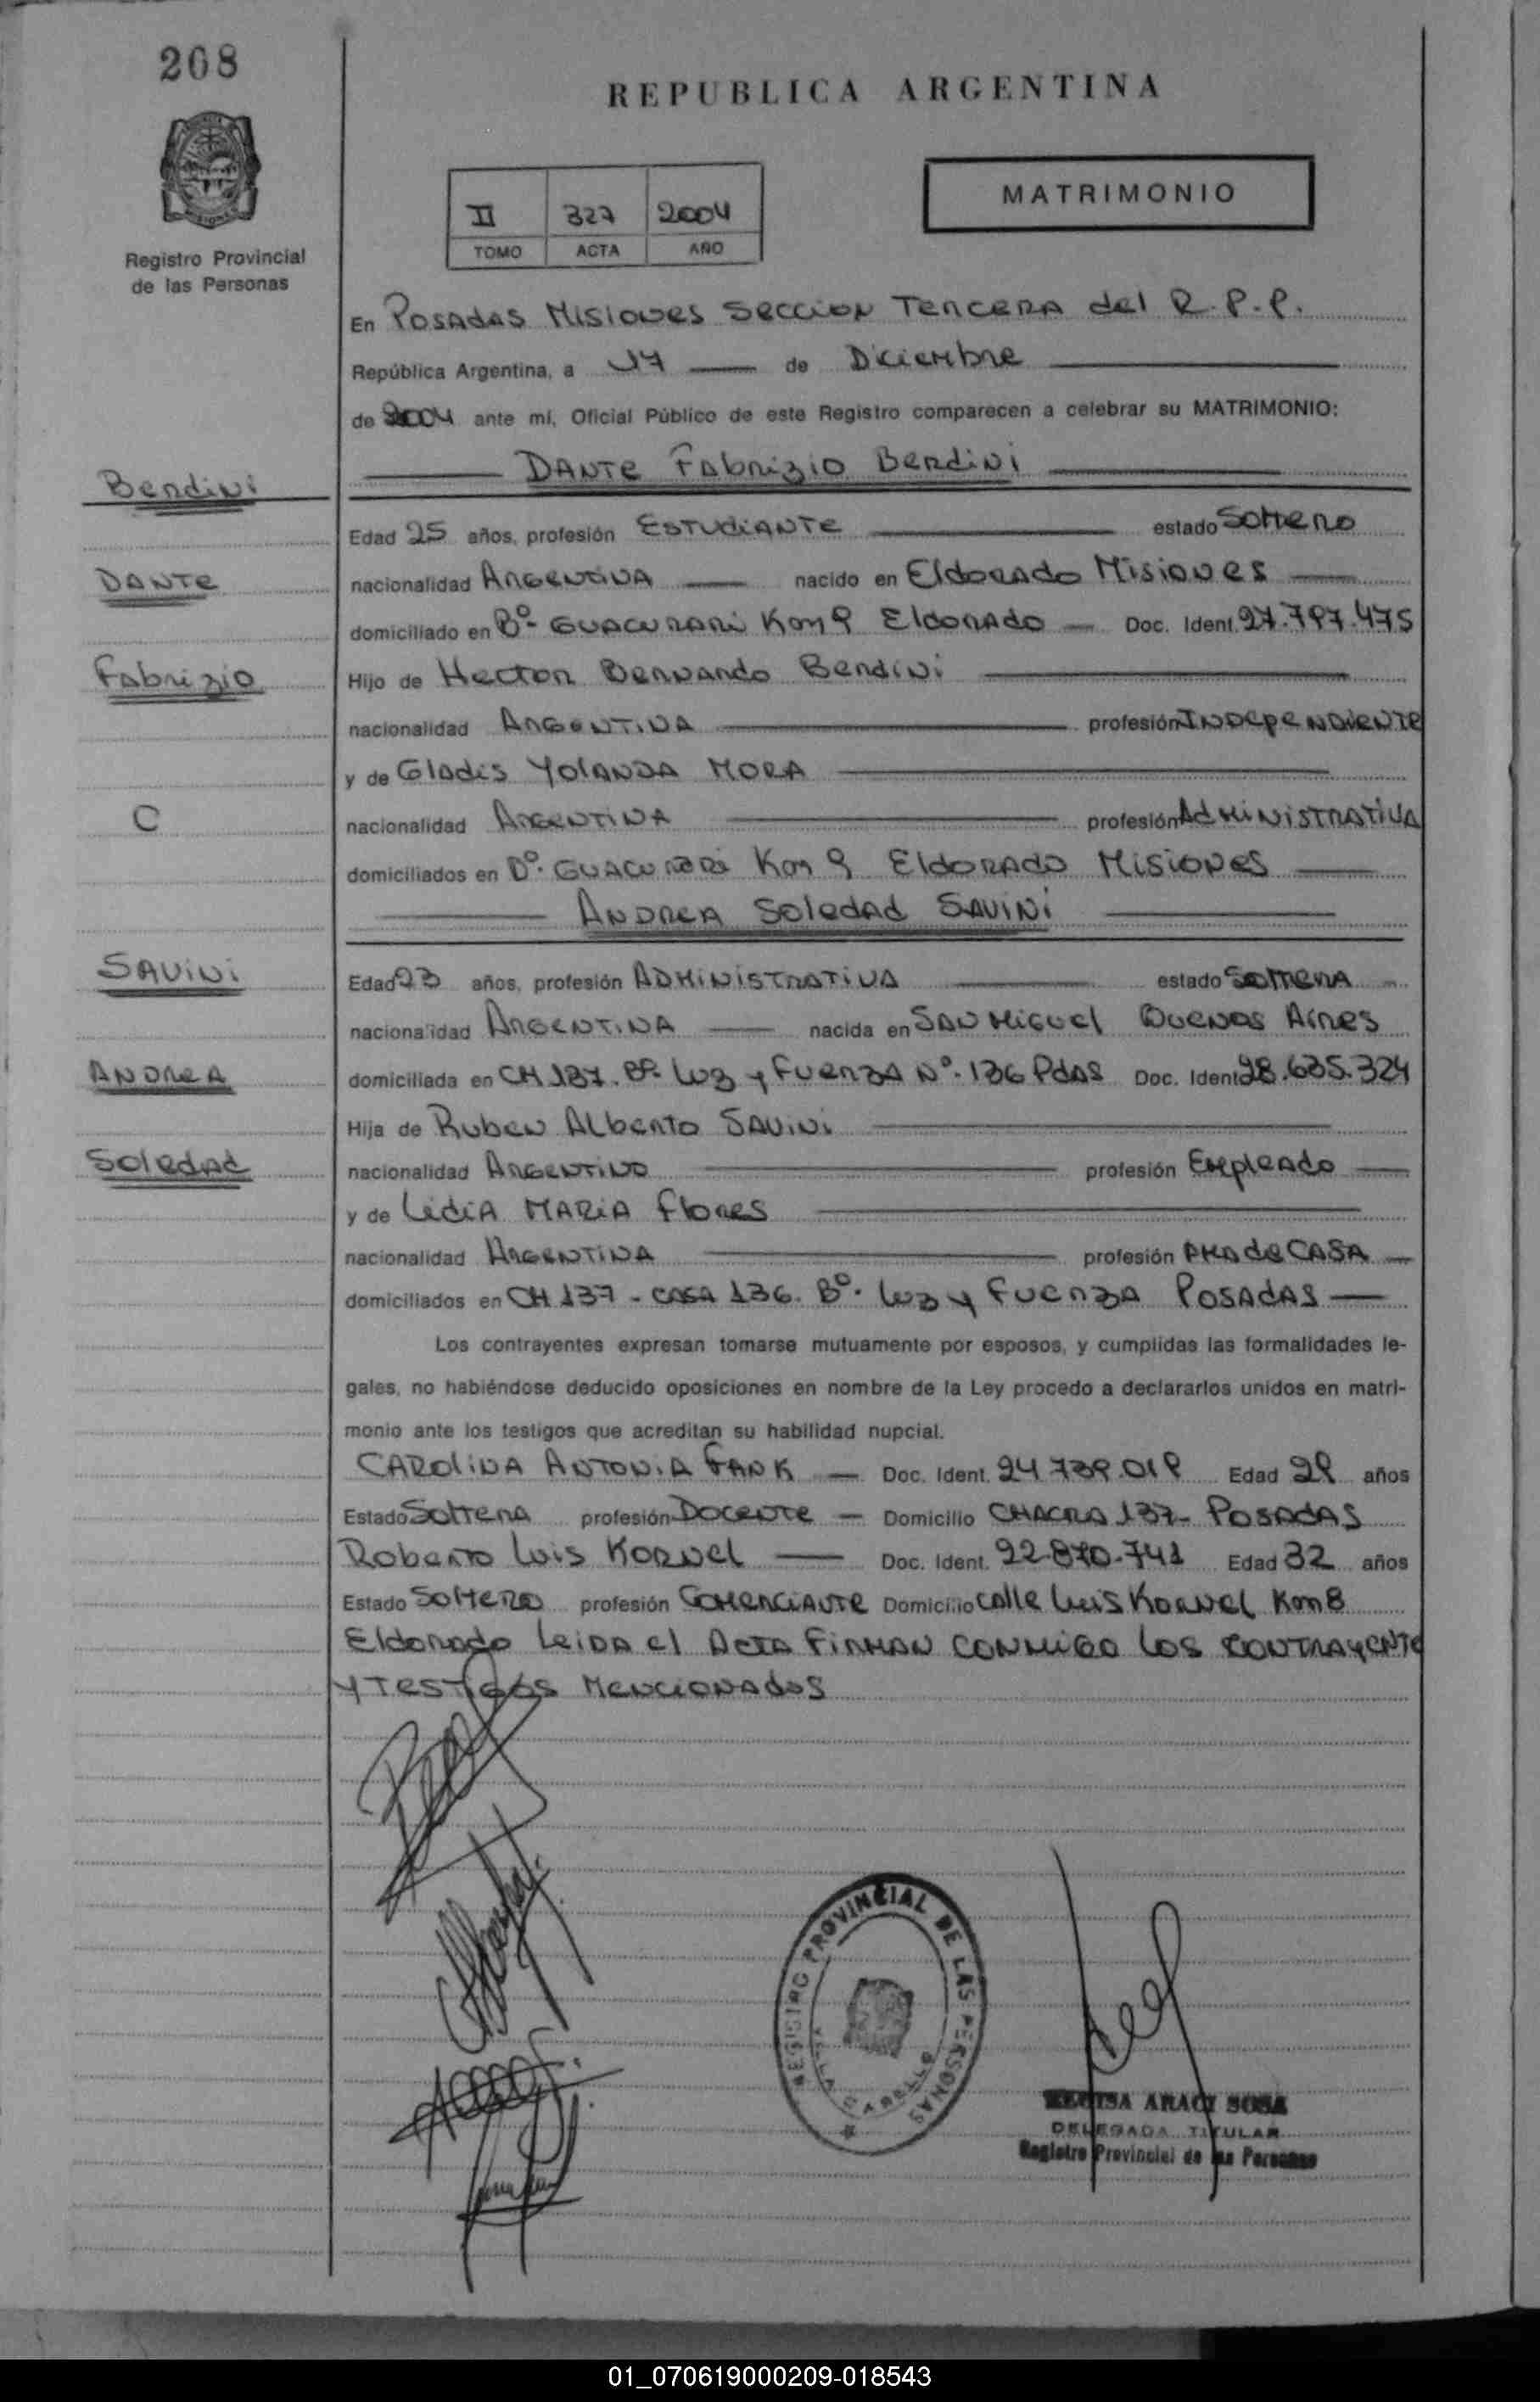 208
REPUBLICA ARGENTINA
MATRIMONIO
II 327 2004
TOMO ACTA AÑO
Registro Provincial
de las Personas
En Posadas Misiones Seccion Tercera del R.P.P.
República Argentina, a 17 — de Diciembre
de 2004 ante mí, Oficial Público de este Registro comparecen a celebrar su MATRIMONIO:
Dante Fabrizio Bendini
Bendini
Edad 25 años, profesión Estudiante estado Soltero
Dante
nacionalidad Argentina — nacido en Eldorado Misiones —
domiciliado en Bº- Guacurari Km 9 Eldorado — Doc. Ident. 27.797.475
Fabrizio
Hijo de Hector Bernando Bendini
nacionalidad Argentina profesión Independiente
y de Gladis Yolanda Mora
C
nacionalidad Argentina profesión Administrativa
domiciliados en Bº. Guacurari Km 9 Eldorado Misiones —
Andrea Soledad Savini
Savini
Edad 23 años, profesión Administrativa estado Soltera -
nacionalidad Argentina — nacida en San Miguel Buenos Aires
Andrea
domiciliada en CH 137. Bº. Luz y Fuerza Nº. 136 Pdas Doc. Ident 28.635.324
Hija de Ruben Alberto Savini
Soledad
nacionalidad Argentino profesión Empleado —
y de Lidia Maria Flores
nacionalidad Argentina profesión Ama de Casa —
domiciliados en CH 137 - casa 136. Bº. Luz y Fuerza Posadas —
Los contrayentes expresan tomarse mutuamente por esposos, y cumplidas las formalidades le-
gales, no habiéndose deducido oposiciones en nombre de la Ley procedo a declararlos unidos en matri-
monio ante los testigos que acreditan su habilidad nupcial.
Carolina Antonia Fank — Doc. Ident. 24.739.019 Edad 29 años
Estado Soltera profesión Docente — Domicilio Chacra 137- Posadas
Roberto Luis Kornel — Doc. Ident. 22.870.741 Edad 32 años
Estado Soltero profesión Comerciante Domicilio calle Luis Kornel Km 8
Eldorado Leida el Acta Firman conmigo los contrayente
y testigos mencionados
REGISTRO PROVINCIAL DE LAS PERSONAS
VILLA CABELLO
REGISA ARACI SOSA
DELEGADA TITULAR
Registro Provincial de las Personas
01_070619000209-018543